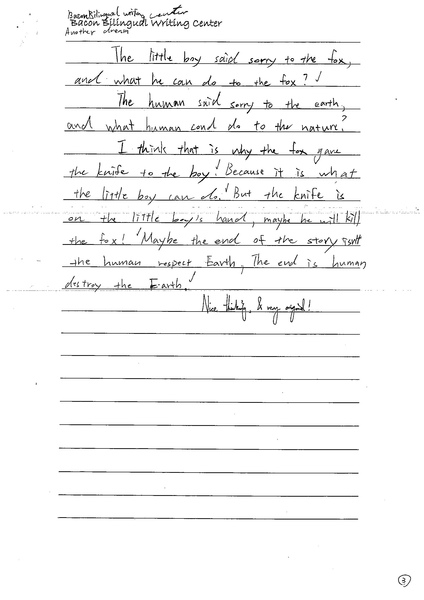 Bacon Bilingual writing center
Bacon Bilingual Writing Center
Another dream
The little boy said sorry to the fox,
and what he can do to the fox?
The human said sorry to the earth,
and what human cond do to the nature?
I think that is why the fox gave
the knife to the boy! Because it is what
the little boy can do. But the knife is
on the little boy's hand, maybe he will kill
the fox! Maybe the end of the story isn't
the human respect Earth, The end is human
destroy the Earth.
Nice thinking, & very original!
3